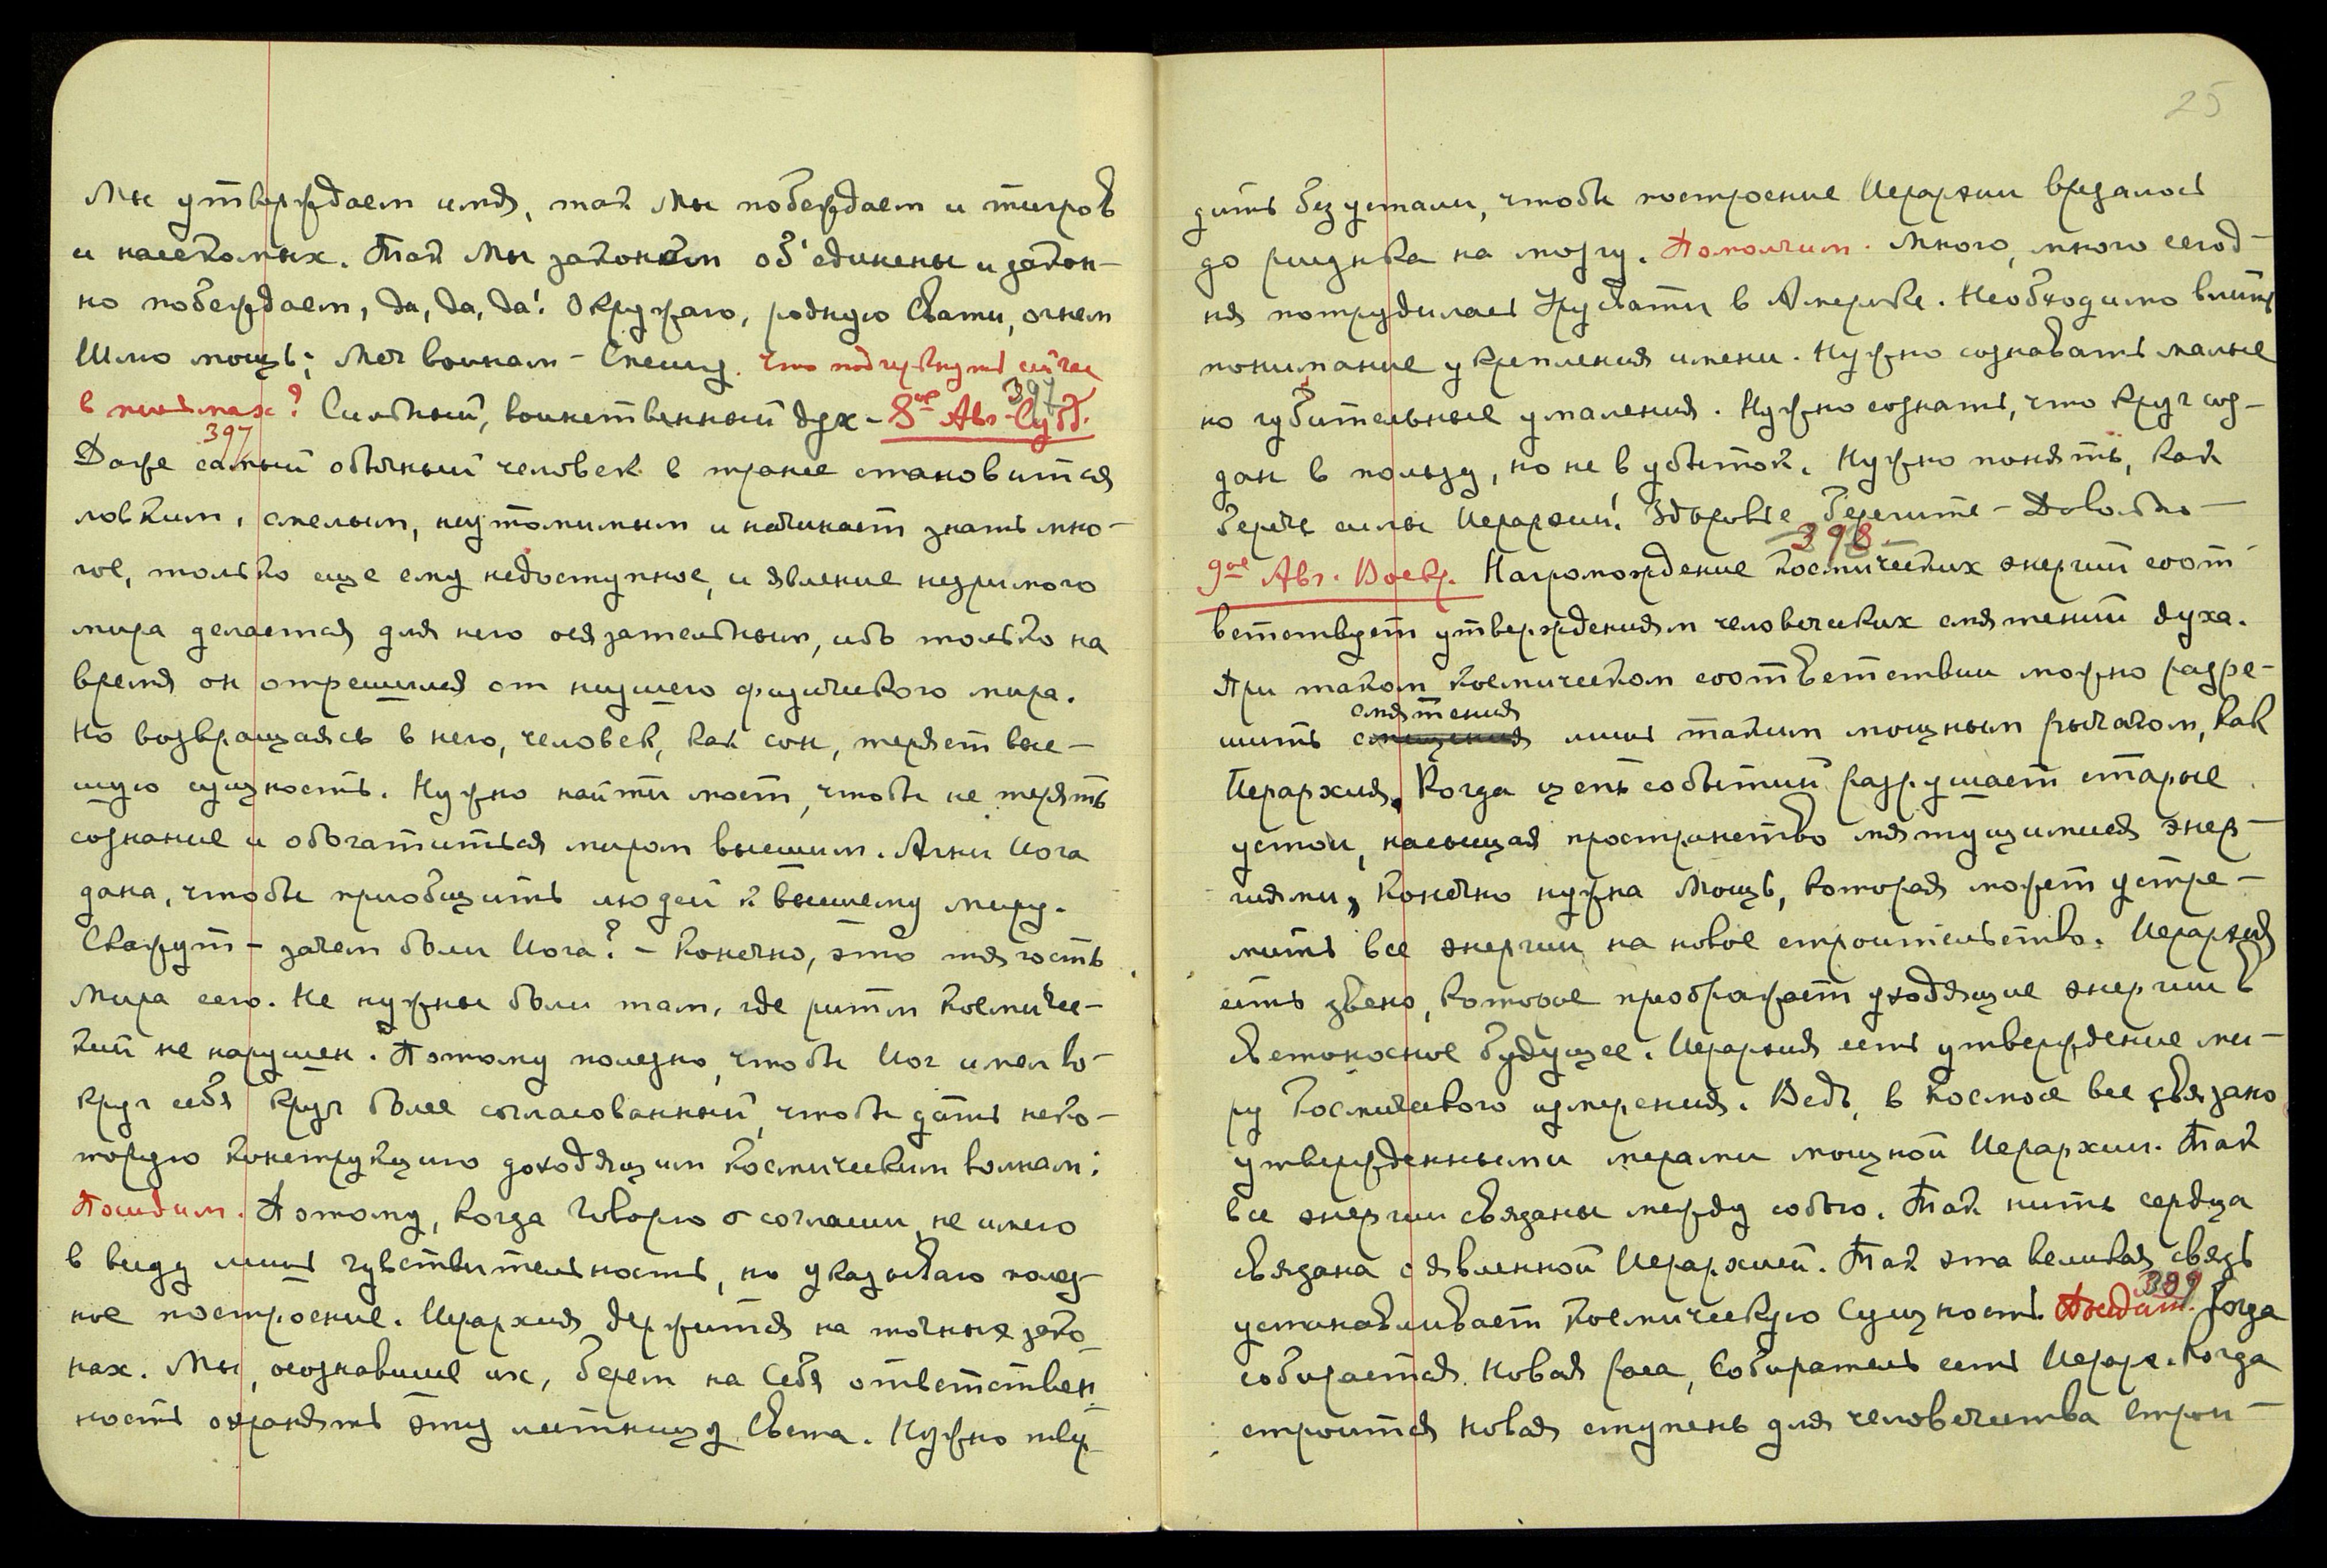 Мы утверждаем имя, так Мы побеждаем и тигров
и насекомых. Так Мы законом об'единены и закон-
но побеждаем, да, да, да! Окружаю, родную Свати, огнем
Шлю мощь; Меч воинам – Спешу. Что подчеркнуть сейчас
в письмах? Сильный, воинственный дух – 8ое Авг. Субб.
397
397
Даже самый обычный человек в трансе становится
ловким, смелым, неутомимым и начинает знать мно-
гое, только еще ему недоступное, и явление незримого
мира делается для него осязательным, ибо только на
время он отрешился от низшего физического мира.
Но возвращаясь в него, человек, как сон, теряет выс-
шую сущность. Нужно найти мост, чтобы не терять
сознание и обогатиться миром высшим. Агни Йога
дана, чтобы приобщить людей к высшему миру.
Скажут – зачем боли Йога? – Конечно, это тягость
мира сего. Не нужны боли там, где ритм космичес-
кий не нарушен. Потому полезно, чтобы Йог имел во-
круг себя круг более согласованный, чтобы дать неко-
торую конструкцию доходящим космическим волнам.
Посидим. Потому, когда говорю о согласии, не имею
в виду лишь чувствительность, но указываю полез-
ное построение. Иерархия держится на точных зако-
нах. Мы, осознавшие их, берем на Себя ответствен-
ность охранять эту лестницу Света. Нужно твер-
25
дить без устали, чтобы построение Иерархии врезалось
до рисунка на мозгу. Помолчим. Много, много сегод-
ня потрудилась Урусвати в Америке. Необходимо влить
понимание укрепления имени. Нужно сознавать малые
но губительные умаления. Нужно сознать, что круг соз-
дан в пользу, но не в убыток. Нужно понять, как
беречь силы Иерархии! Здоровье берегите – Довольно –
398
9ое Авг. Воскр. Нагромождение космических энергий соот-
ветствует утверждениям человеческих смятений духа.
При таком космическом соответствии можно разре-
смятения
шить лишь таким мощным рычагом, как
Иерархия. Когда цепь событий разрушает старые
устои, насыщая пространство мятущимися энер-
гиями, конечно нужна Мощь, которая может устре-
мить все энергии на новое строительство. Иерархия
есть звено, которое преображает уходящие энергии в
светоносное будущее. Иерархия есть утверждение ми-
ру космического измерения. Ведь, в Космосе все связано
утвержденными мерами мощной Иерархии. Так
все энергии связаны между собою. Так нить сердца
связана с явленной Иерархией. Так эта великая связь
устанавливает космическую Сущность. Посидим. Когда
399
собирается новая раса, Собиратель есть Иерарх. Когда
строится новая ступень для человечества Строи-